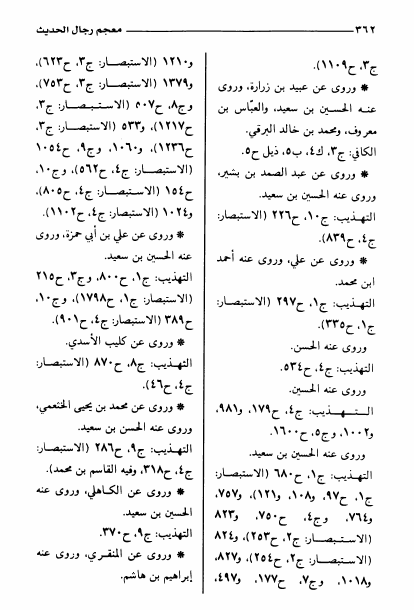 ٣٦٢ معجم رجال الحديث
ج٣، ح١١٠٩).
* وروى عن عبيد بن زرارة، وروى
عنه الحسين بن سعيد، والعبّاس بن
معروف، ومحمد بن خالد البرقي.
الكافي: ج٣، ك٤، ب٥، ذيل ح٥.
* وروى عن عبد الصمد بن بشير،
وروى عنه الحسين بن سعيد.
التهذيب: ج١٠، ح٢٢٦ (الاستبصار:
ج٤، ح٨٣٩).
* وروى عن علي، وروى عنه أحمد
ابن محمد.
التهذيب: ج١، ح٢٩٧ (الاستبصار:
ج١، ح٣٣٥).
وروى عنه الحسن.
التهذيب: ج٤، ح٥٣٤.
وروى عنه الحسين.
التـهـذيب: ج٤، ح١٧٩، و٩٨١،
و١٠٠٢، وج٥، ح١٦٠٠.
وروى عنه الحسين بن سعيد.
التهذيب: ج١، ح٦٨٠ (الاستبصار:
ج١، ح٩٧، و١٠٨، و١٢١)، و٧٥٧،
و٧٦٤، وج٤، ح٧٥٠، و٨٢٣
(الاستبصار: ج٢، ح٢٥٣)، و٨٢٤
(الاستبصار: ج٢، ح٢٥٤)، و٨٢٧،
و١٠١٨، وج٧، ح١٧٧، و٤٩٧،
و١٢١٠ (الاستبصار: ج٣، ح٦٢٣)،
و١٣٧٩ (الاستبصار: ج٣، ح٧٥٣)،
وج٨، ح٥٠٧ (الاستـبـصـار: ج٣،
ح١٢١٧)، و٥٣٣ (الاستبصار: ج٣،
ح١٢٣٦)، و١٠٦٠، وج٩، ح١٠٥٤
(الاستبصار: ج٤، ح٥٦٢)، وج١٠،
ح١٥٤ (الاستبصار: ج٤، ح٨٠٥)،
و١٠٢٤ (الاستبصار: ج٤، ح١١٠٢).
* وروى عن علي بن أبي حمزة، وروى
عنه الحسين بن سعيد.
التهذيب: ج١، ح٨٠٠، وج٣، ح٢١٥
(الاستبصار: ج١، ح١٧٩٨)، وج١٠،
ح٣٨٩ (الاستبصار: ج٤، ح٩٠١).
* وروى عن كليب الأسدي.
التهذيب: ج٨، ح٨٧٠ (الاستبصار:
ج٤، ح٤٦).
* وروى عن محمد بن يحيى الخثعمي،
وروى عنه الحسن بن سعيد.
التهذيب: ج٩، ح٢٨٦ (الاستبصار:
ج٤، ح٣١٨، وفيه القاسم بن محمد).
* وروى عن الكاهلي، وروى عنه
الحسين بن سعيد.
التهذيب: ج٩، ح٣٧٠.
* وروى عن المنقري، وروى عنه
إبراهيم بن هاشم.